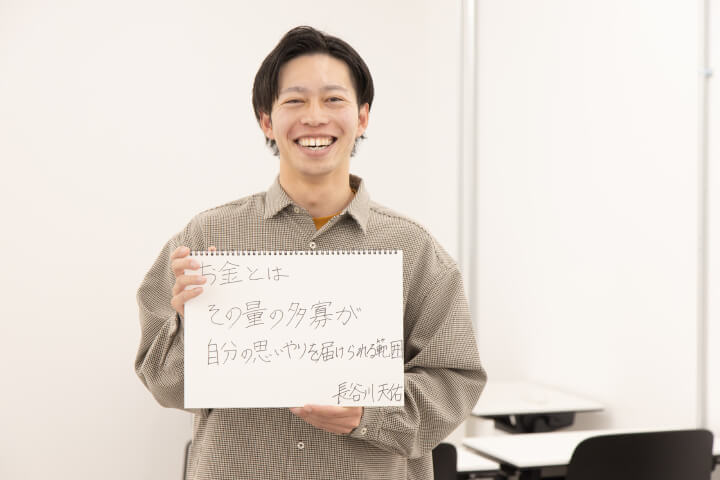 お金とは
その量の多寡が
自分の思いやりを届けられる範囲
長谷川天佑